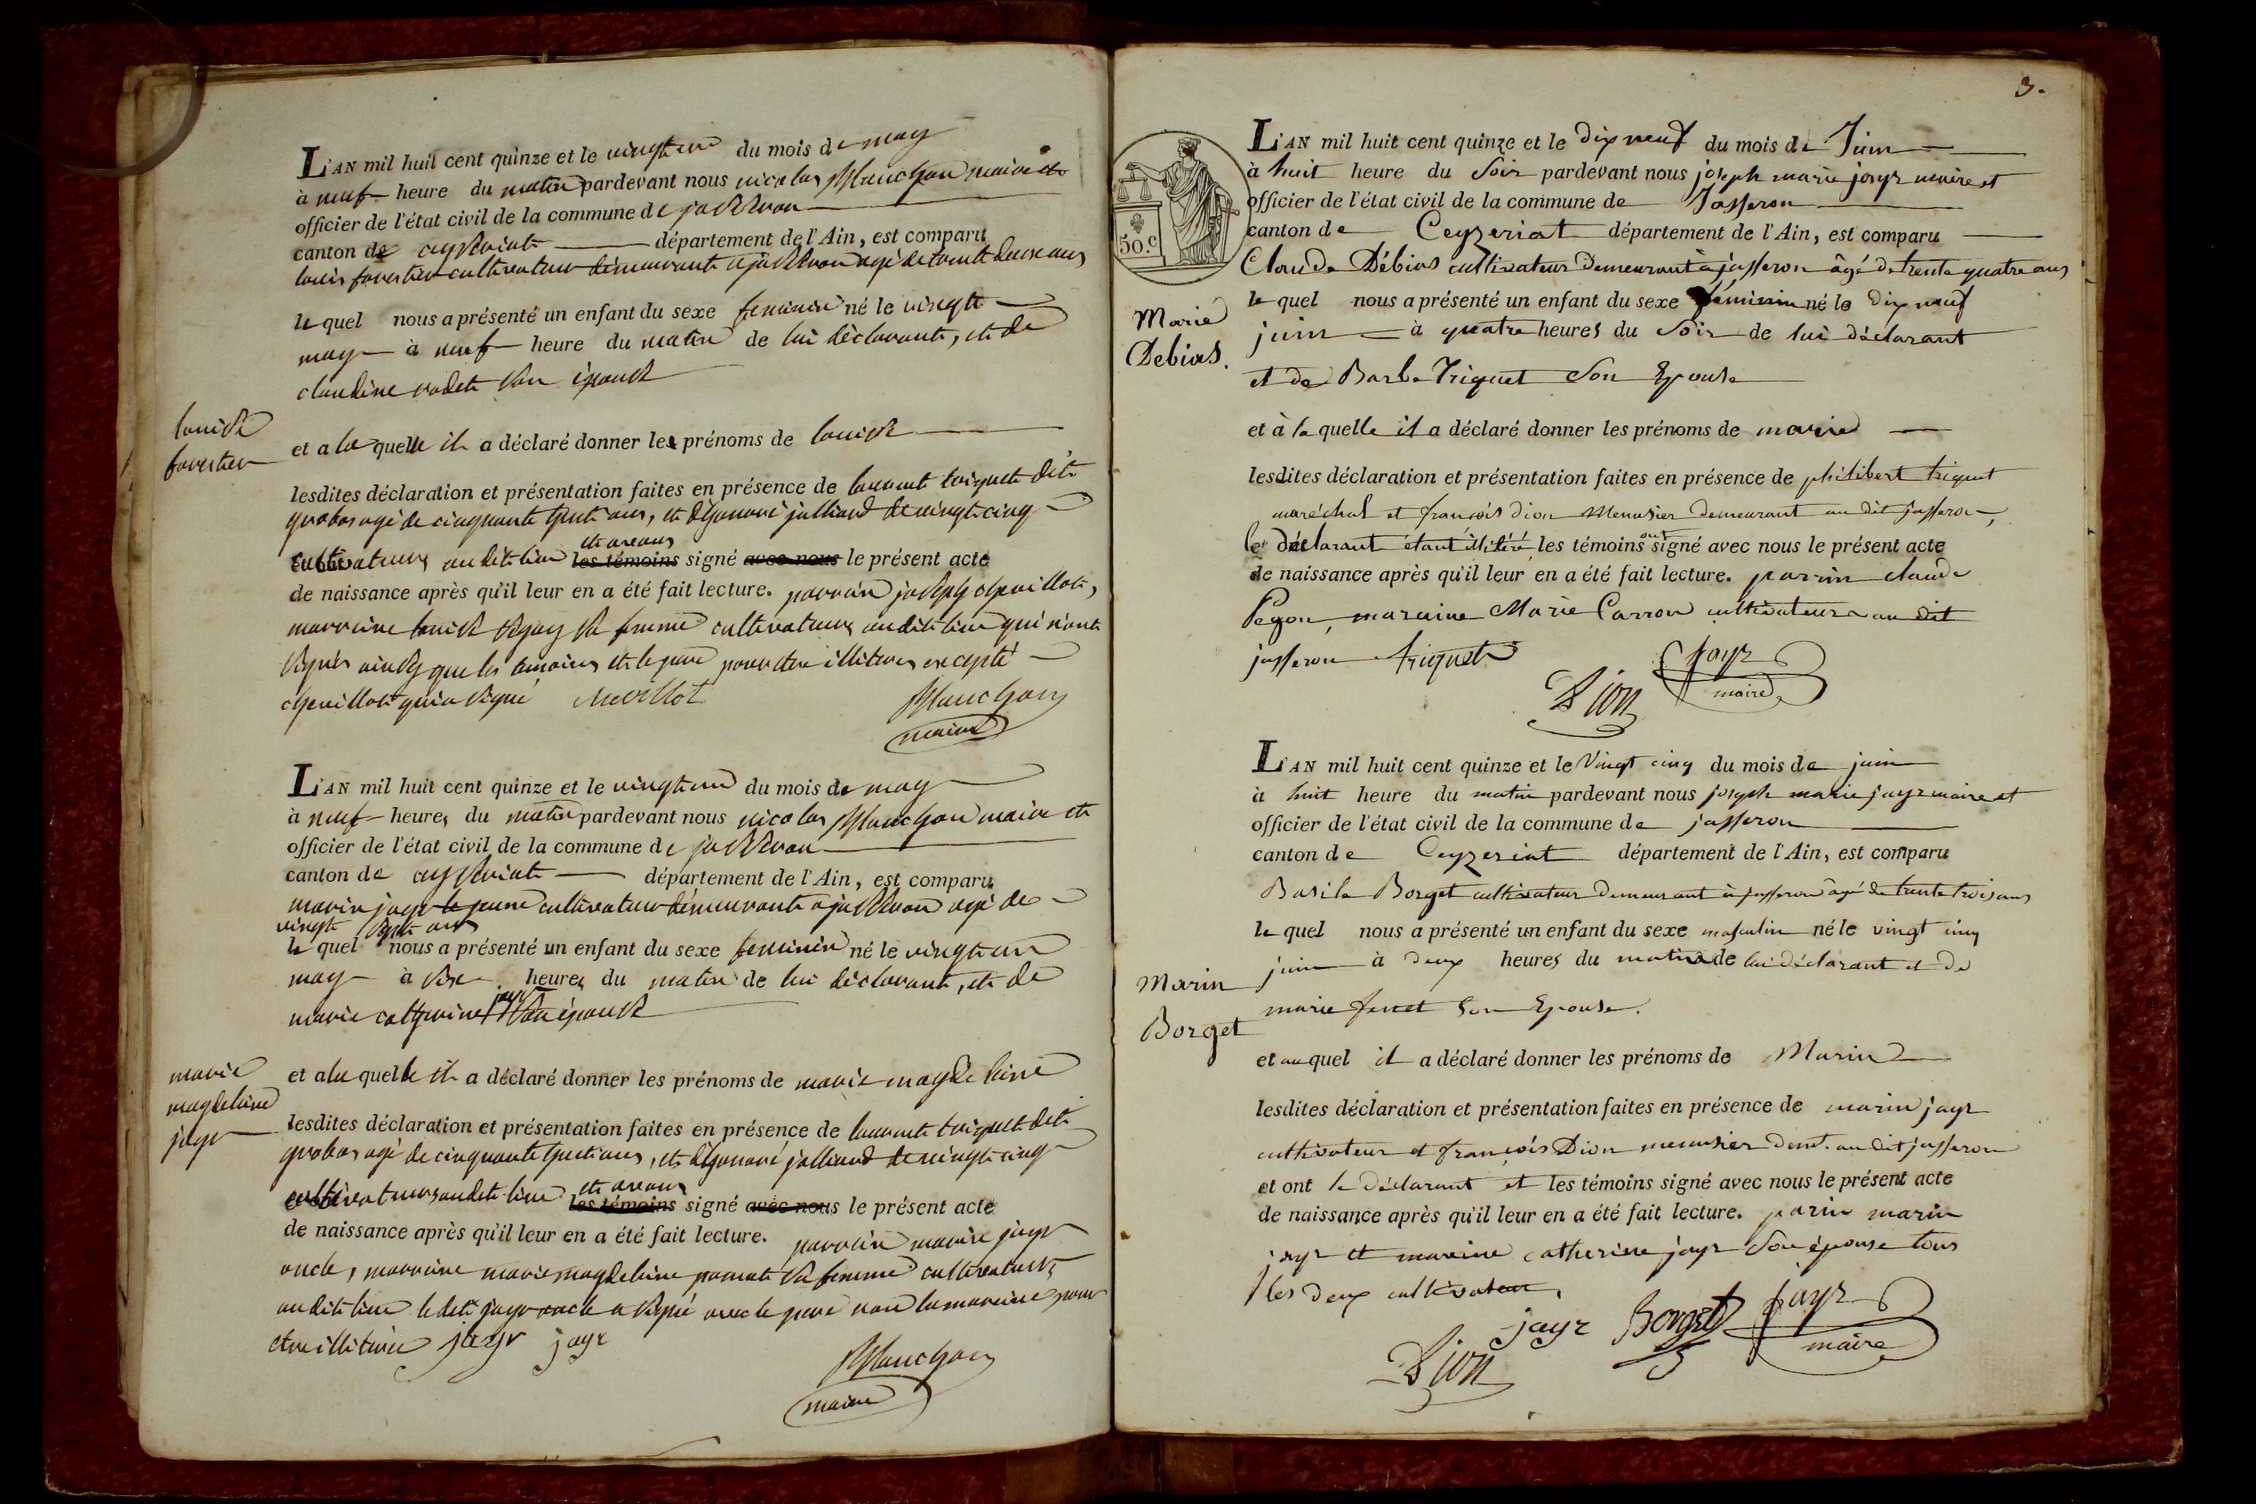 L'AN mil huit cent quinze et le vingt un du mois de may
à neuf heure du matin pardevant nous nicolas Blanchon maire et
officier de l'état civil de la commune de jasseron
canton de ceyseriat département de l'Ain, est comparu
louis forestier cultivateur demeurant a jasseron agé de trente deux ans
le quel nous a présenté un enfant du sexe feminin né le vingt
may à neuf heure du matin de lui déclarant, et de
claudine vadet son épouse
louise
forestier
et a la quelle il a déclaré donner les prénoms de louise
lesdites déclaration et présentation faites en présence de laurent triquet dit
grobas agé de cinquante huit ans, et d'honoré jalliard de vingt cinq
cultivateurs au dit lieu les témoins et avons signé avec nous le présent acte
de naissance après qu'il leur en a été fait lecture. parrain joseph chevillot,
marraine louise sa femme cultivateurs au dit lieu qui n'ont
signés ainsy que les temoins et le pere pour etre illiteres excepté
chevillot qui a signé chevillot Blanchon
maire
L'AN mil huit cent quinze et le vingt un du mois de may
à neuf heures du matin pardevant nous nicolas Blanchon maire et
officier de l'état civil de la commune de jasseron
canton de ceyseriat département de l'Ain, est comparu
marin jayr le jeune cultivateur demeurant a jasseron agé de
vingt sept ans
le quel nous a présenté un enfant du sexe feminin né le vingt un
may à six heures du matin de lui déclarant, et de
marie catherine jayr son épouse
marie
magdelaine
jayr
et a la quelle il a déclaré donner les prénoms de marie magdelaine
lesdites déclaration et présentation faites en présence de laurent triquet dit
grobas agé de cinquante huit ans, et d'honoré jalliard de vingt cinq
cultivateurs au dit lieu les témoins et avons signé avec nous le présent acte
de naissance après qu'il leur en a été fait lecture. parrain marin jayr
oncle, marraine marie magdelaine sa femme cultivateurs
au dit lieu le dit jayr oncle a signé avec le pere non la maraine pour
etre illiterée jayr jayr
Blanchon
maire
3.
50.c
L'AN mil huit cent quinze et le dix neuf du mois de Juin
à huit heure du Soir pardevant nous joseph marie jayr maire et
officier de l'état civil de la commune de Jasseron
canton de Ceyzeriat département de l'Ain, est comparu
Claude Débias cultivateur demeurant à jasseron âgé de trente quatre ans
le quel nous a présenté un enfant du sexe féminin né le dix neuf
juin à quatre heures du Soir de lui déclarant
et de Barbe Triquet Son Epouse
Marie
Debias.
et à la quelle il a déclaré donner les prénoms de marie
lesdites déclaration et présentation faites en présence de philibert triquet
maréchal et françois dion Menusier demeurant au dit jasseron,
le déclarant étant illitéré les témoins ont signé avec nous le présent acte
de naissance après qu'il leur en a été fait lecture. parrin claude
Pegon, maraine Marie Carron cultivateurs au dit
jasseron triquet jayr
Dion maire
L'AN mil huit cent quinze et le Vingt cinq du mois de juin
à huit heure du matin pardevant nous joseph marie jayr maire et
officier de l'état civil de la commune de jasseron
canton de Ceyzeriat département de l'Ain, est comparu
Basile Borget cultivateur demeurant à jasseron âgé de trente trois ans
le quel nous a présenté un enfant du sexe masculin né le vingt cinq
juin à deux heures du matin de lui déclarant et de
marie fenet Son Epouse.
Marin
Borget
et au quel il a déclaré donner les prénoms de Marin
lesdites déclaration et présentation faites en présence de marin jayr
cultivateur et françois Dion menusier demt. au dit jasseron
et ont le déclarant et les témoins signé avec nous le présent acte
de naissance après qu'il leur en a été fait lecture. parin marin
jayr et mareine catherine jayr Son épouse tous
les deux cultivateur,
jayr Borget jayr
Dion maire